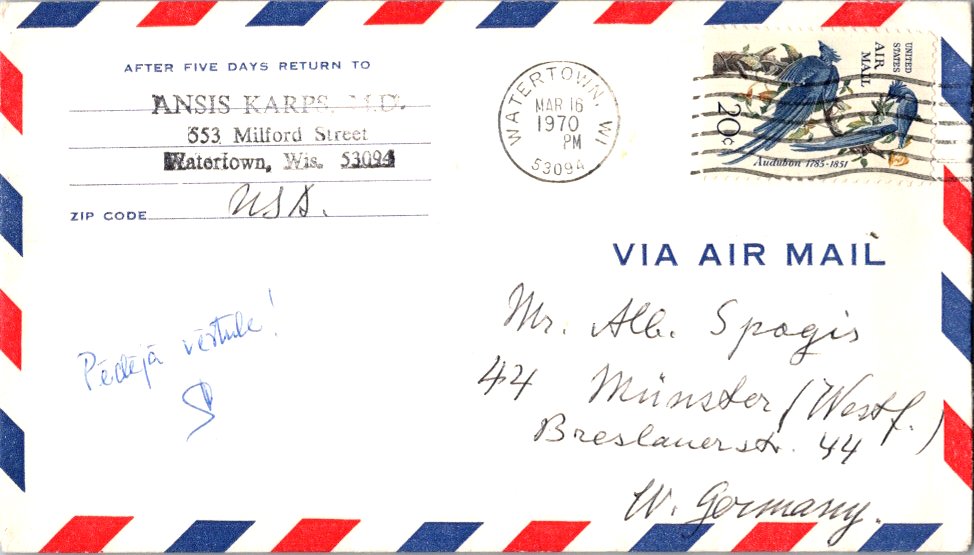 AFTER FIVE DAYS RETURN TO
ANSIS KARPS, M.D.
553 Milford Street
Watertown, Wis. 53094
ZIP CODE USA.
WATERTOWN, WI
MAR 16
1970
PM
53094
UNITED STATES
AIR MAIL
20c
Audubon 1785-1851
VIA AIR MAIL
Mr. Alb. Spogis
44 Münster (Westf.)
Breslauerstr. 44
W. Germany.
Pēdējā vēstule!